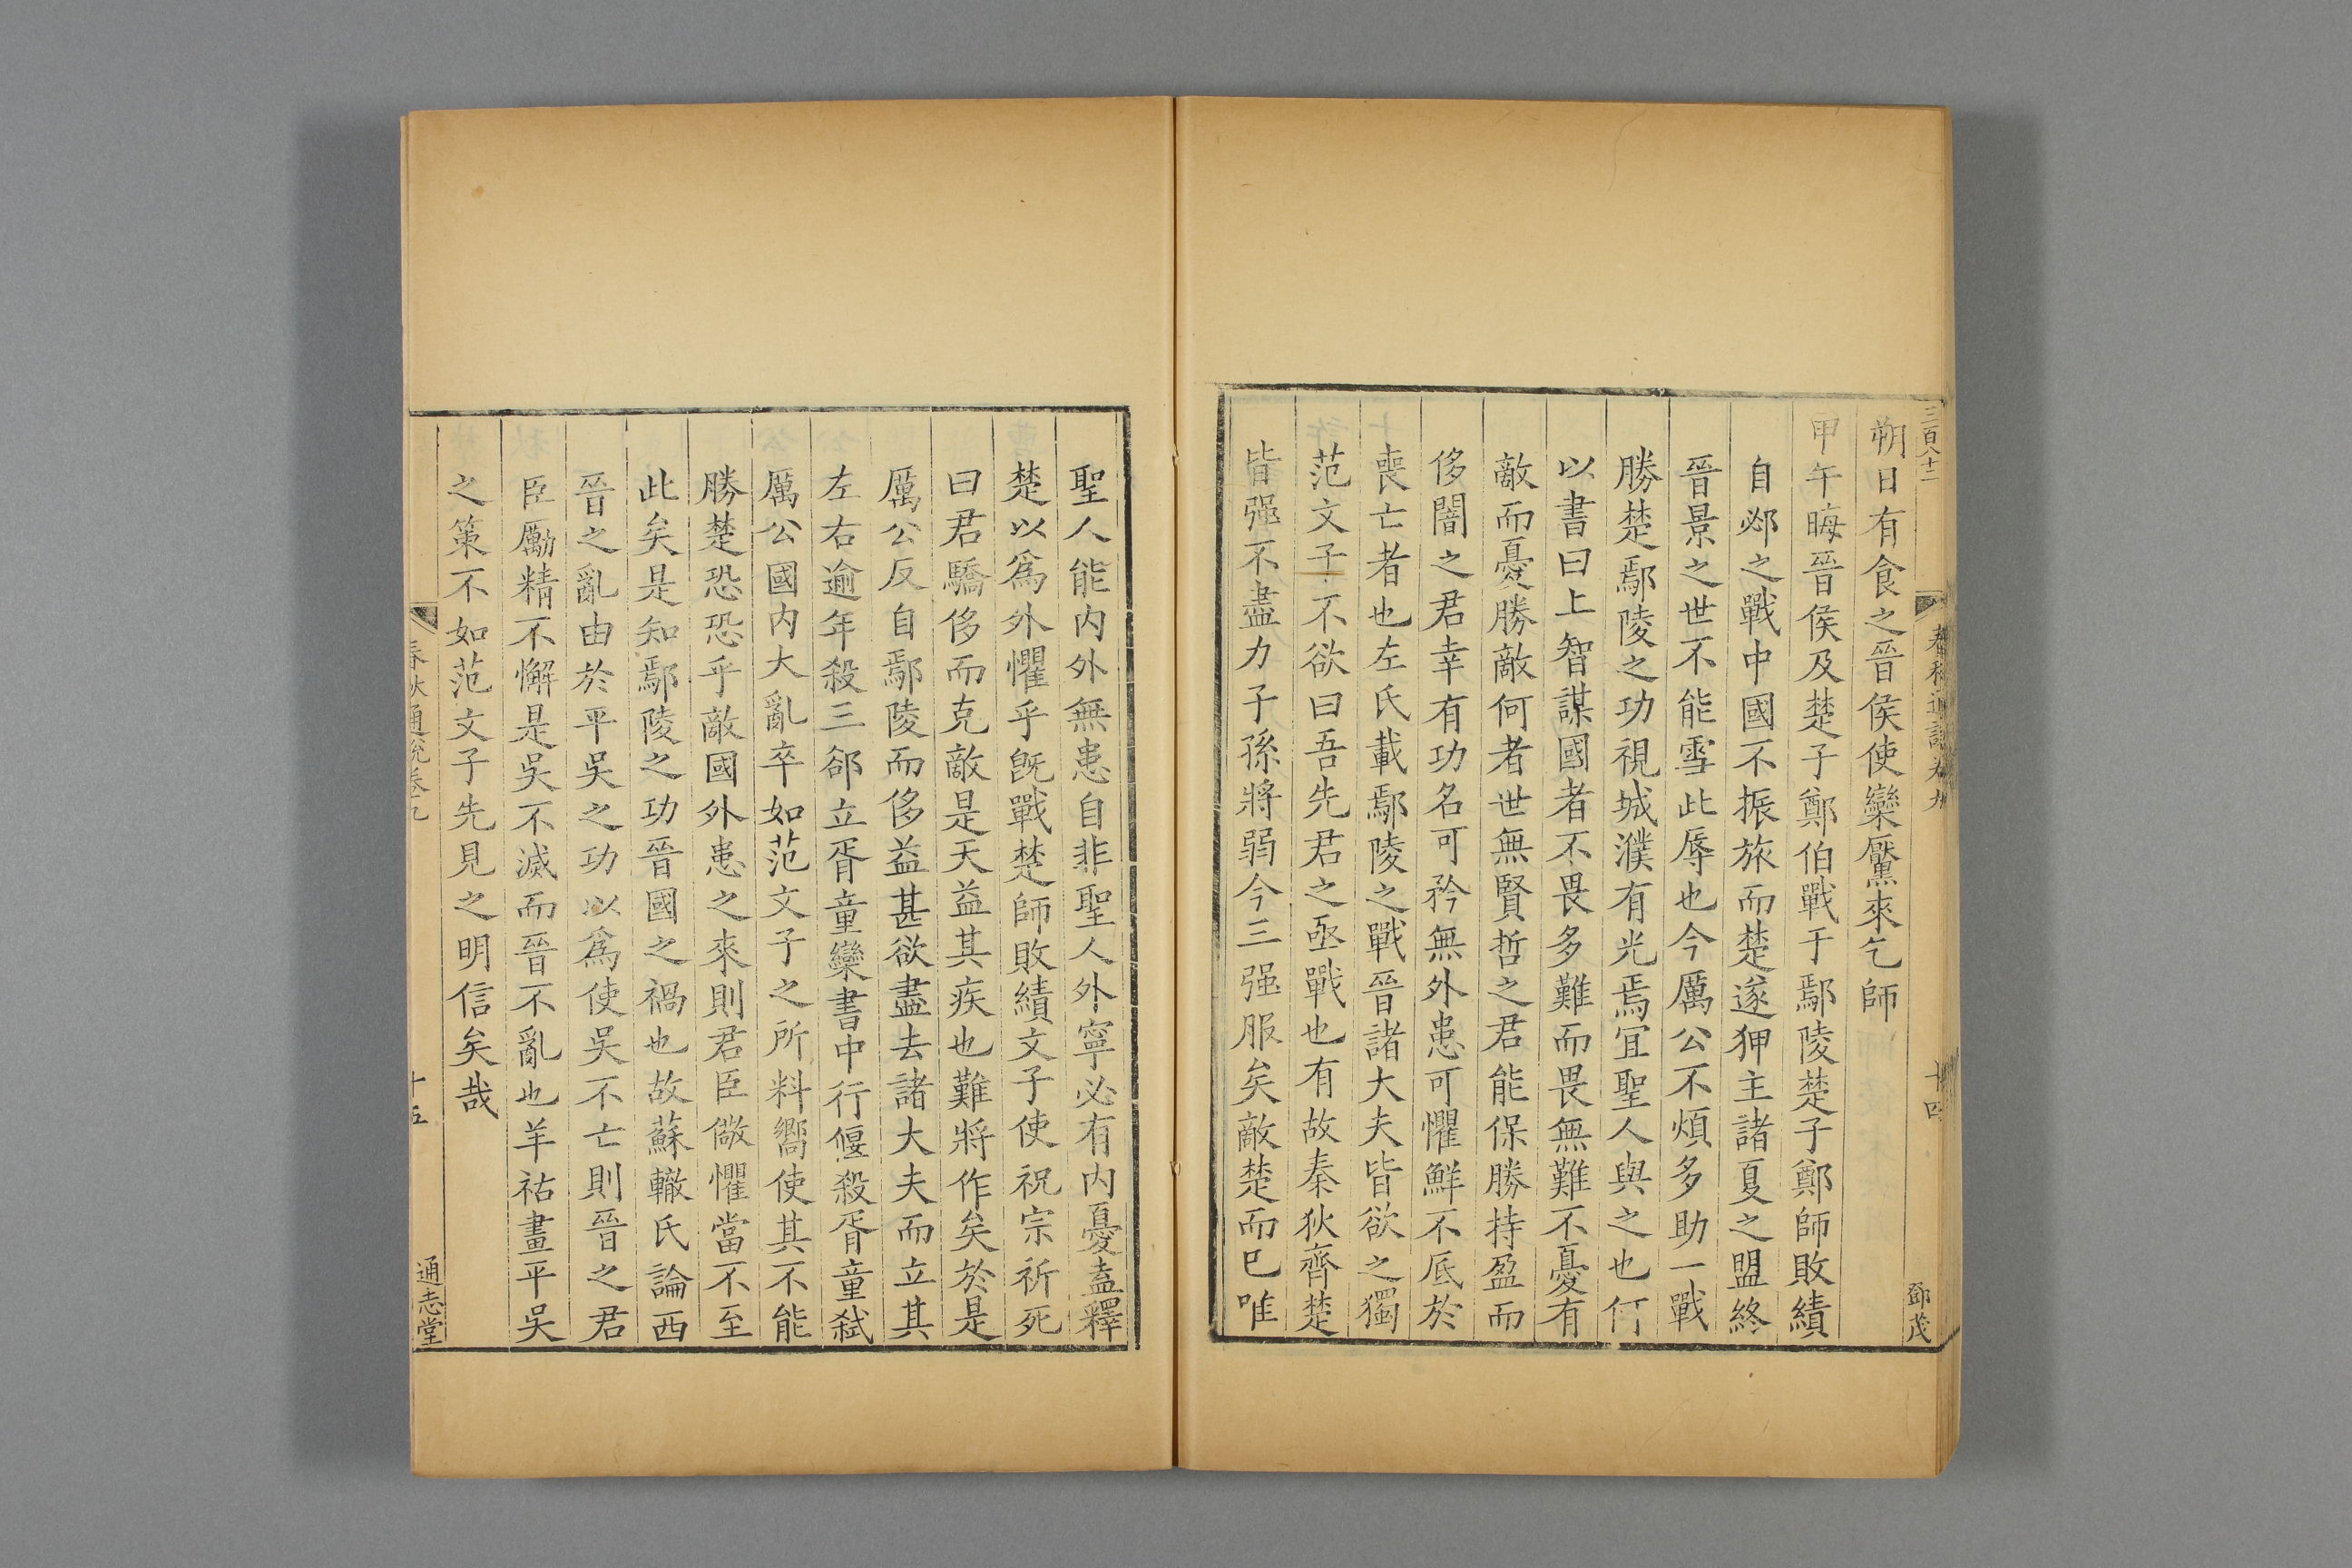 三百八十二
春秋通說卷九
十四
鄧茂
朔日有食之晉侯使欒黶來乞師
甲午晦晉侯及楚子鄭伯戰于鄢陵楚子鄭師敗績
自邲之戰中國不振旅而楚遂狎主諸夏之盟終
晉景之世不能雪此辱也今厲公不煩多助一戰
勝楚鄢陵之功視城濮有光焉冝聖人與之也何
以書曰上智謀國者不畏多難而畏無難不憂有
敵而憂勝敵何者世無賢哲之君能保勝持盈而
侈闇之君幸有功名可矜無外患可懼鮮不底於
喪亡者也左氏載鄢陵之戰晉諸大夫皆欲之獨
范文子不欲曰吾先君之亟戰也有故秦狄齊楚
皆强不盡力子孫將弱今三强服矣敵楚而已唯
聖人能内外無患自非聖人外寧必有内憂盍釋
楚以爲外懼乎旣戰楚師敗績文子使祝宗祈死
曰君驕侈而克敵是天益其疾也難將作矣於是
厲公反自鄢陵而侈益甚欲盡去諸大夫而立其
左右逾年殺三郤立胥童欒書中行偃殺胥童弑
厲公國内大亂卒如范文子之所料嚮使其不能
勝楚恐恐乎敵國外患之來則君臣儆懼當不至
此矣是知鄢陵之功晉國之禍也故蘇轍氏論西
晉之亂由於平吳之功以爲使吳不亡則晉之君
臣勵精不懈是吳不滅而晉不亂也羊祜畫平吳
之策不如范文子先見之明信矣哉
春秋通說卷九
十五
通志堂